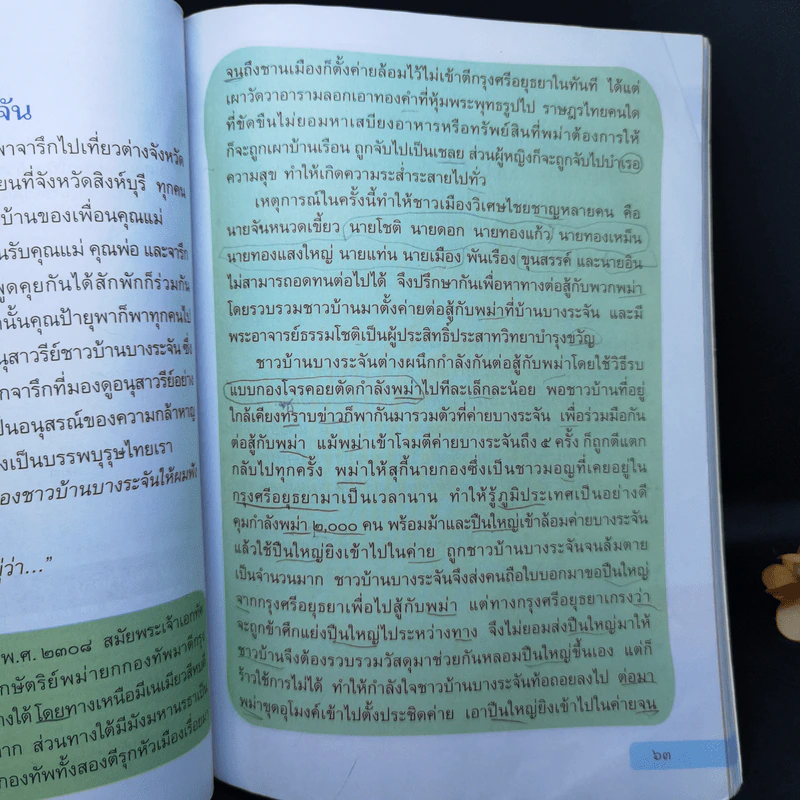 จัน
พาจารึกไปเที่ยวต่างจังหวัด
ยนที่จังหวัดสิงห์บุรี ทุกคน
บ้านของเพื่อนคุณแม่
นรับคุณแม่ คุณพ่อ และจารึก
พูดคุยกันได้สักพักก็ร่วมกัน
นั้นคุณป้ายุพาก็พาทุกคนไป
นุสาวรีย์ชาวบ้านบางระจัน ซึ่ง
กจารึกที่มองดูอนุสาวรีย์อย่าง
ป็นอนุสรณ์ของความกล้าหาญ
งเป็นบรรพบุรุษไทยเรา
องชาวบ้านบางระจันให้ผมฟัง
ู่ว่า...”
พ.ศ. ๒๓๐๘ สมัยพระเจ้าเอกทัศ
กษัตริย์พม่ายกกองทัพมาตีกรุง
างใต้ โดยทางเหนือมีเนเมียวสีหบดี
าก ส่วนทางใต้มีมังมหานรธาเป็น
กองทัพทั้งสองตีรุกหัวเมืองเรื่อยมา
จนถึงชานเมืองก็ตั้งค่ายล้อมไว้ไม่เข้าตีกรุงศรีอยุธยาในทันที ได้แต่
เผาวัดวาอารามลอกเอาทองคำที่หุ้มพระพุทธรูปไป ราษฎรไทยคนใด
ที่ขัดขืนไม่ยอมหาเสบียงอาหารหรือทรัพย์สินที่พม่าต้องการให้
ก็จะถูกเผาบ้านเรือน ถูกจับไปเป็นเชลย ส่วนผู้หญิงก็จะถูกจับไปบำเรอ
ความสุข ทำให้เกิดความระส่ำระสายไปทั่ว
เหตุการณ์ในครั้งนี้ทำให้ชาวเมืองวิเศษไชยชาญหลายคน คือ
นายจันหนวดเขี้ยว นายโชติ นายดอก นายทองแก้ว นายทองเหม็น
นายทองแสงใหญ่ นายแท่น นายเมือง พันเรือง ขุนสรรค์ และนายอิน
ไม่สามารถอดทนต่อไปได้ จึงปรึกษากันเพื่อหาทางต่อสู้กับพวกพม่า
โดยรวบรวมชาวบ้านมาตั้งค่ายต่อสู้กับพม่าที่บ้านบางระจัน และมี
พระอาจารย์ธรรมโชติเป็นผู้ประสิทธิ์ประสาทวิทยาบำรุงขวัญ
ชาวบ้านบางระจันต่างผนึกกำลังกันต่อสู้กับพม่าโดยใช้วิธีรบ
แบบกองโจรคอยตัดกำลังพม่าไปทีละเล็กละน้อย พอชาวบ้านที่อยู่
ใกล้เคียงทราบข่าวก็พากันมารวมตัวที่ค่ายบางระจัน เพื่อร่วมมือกัน
ต่อสู้กับพม่า แม้พม่าเข้าโจมตีค่ายบางระจันถึง ๕ ครั้ง ก็ถูกตีแตก
กลับไปทุกครั้ง พม่าให้สุกี้นายกองซึ่งเป็นชาวมอญที่เคยอยู่ใน
กรุงศรีอยุธยามาเป็นเวลานาน ทำให้รู้ภูมิประเทศเป็นอย่างดี
คุมกำลังพม่า ๒,๐๐๐ คน พร้อมม้าและปืนใหญ่เข้าล้อมค่ายบางระจัน
แล้วใช้ปืนใหญ่ยิงเข้าไปในค่าย ถูกชาวบ้านบางระจันจนล้มตาย
เป็นจำนวนมาก ชาวบ้านบางระจันจึงส่งคนถือใบบอกมาขอปืนใหญ่
จากกรุงศรีอยุธยาเพื่อไปสู้กับพม่า แต่ทางกรุงศรีอยุธยาเกรงว่า
จะถูกข้าศึกแย่งปืนใหญ่ไประหว่างทาง จึงไม่ยอมส่งปืนใหญ่มาให้
ชาวบ้านจึงต้องรวบรวมวัสดุมาช่วยกันหลอมปืนใหญ่ขึ้นเอง แต่ก็
ร้าวใช้การไม่ได้ ทำให้กำลังใจชาวบ้านบางระจันท้อถอยลงไป ต่อมา
พม่าขุดอุโมงค์เข้าไปตั้งประชิดค่าย เอาปืนใหญ่ยิงเข้าไปในค่ายจน
๖๓